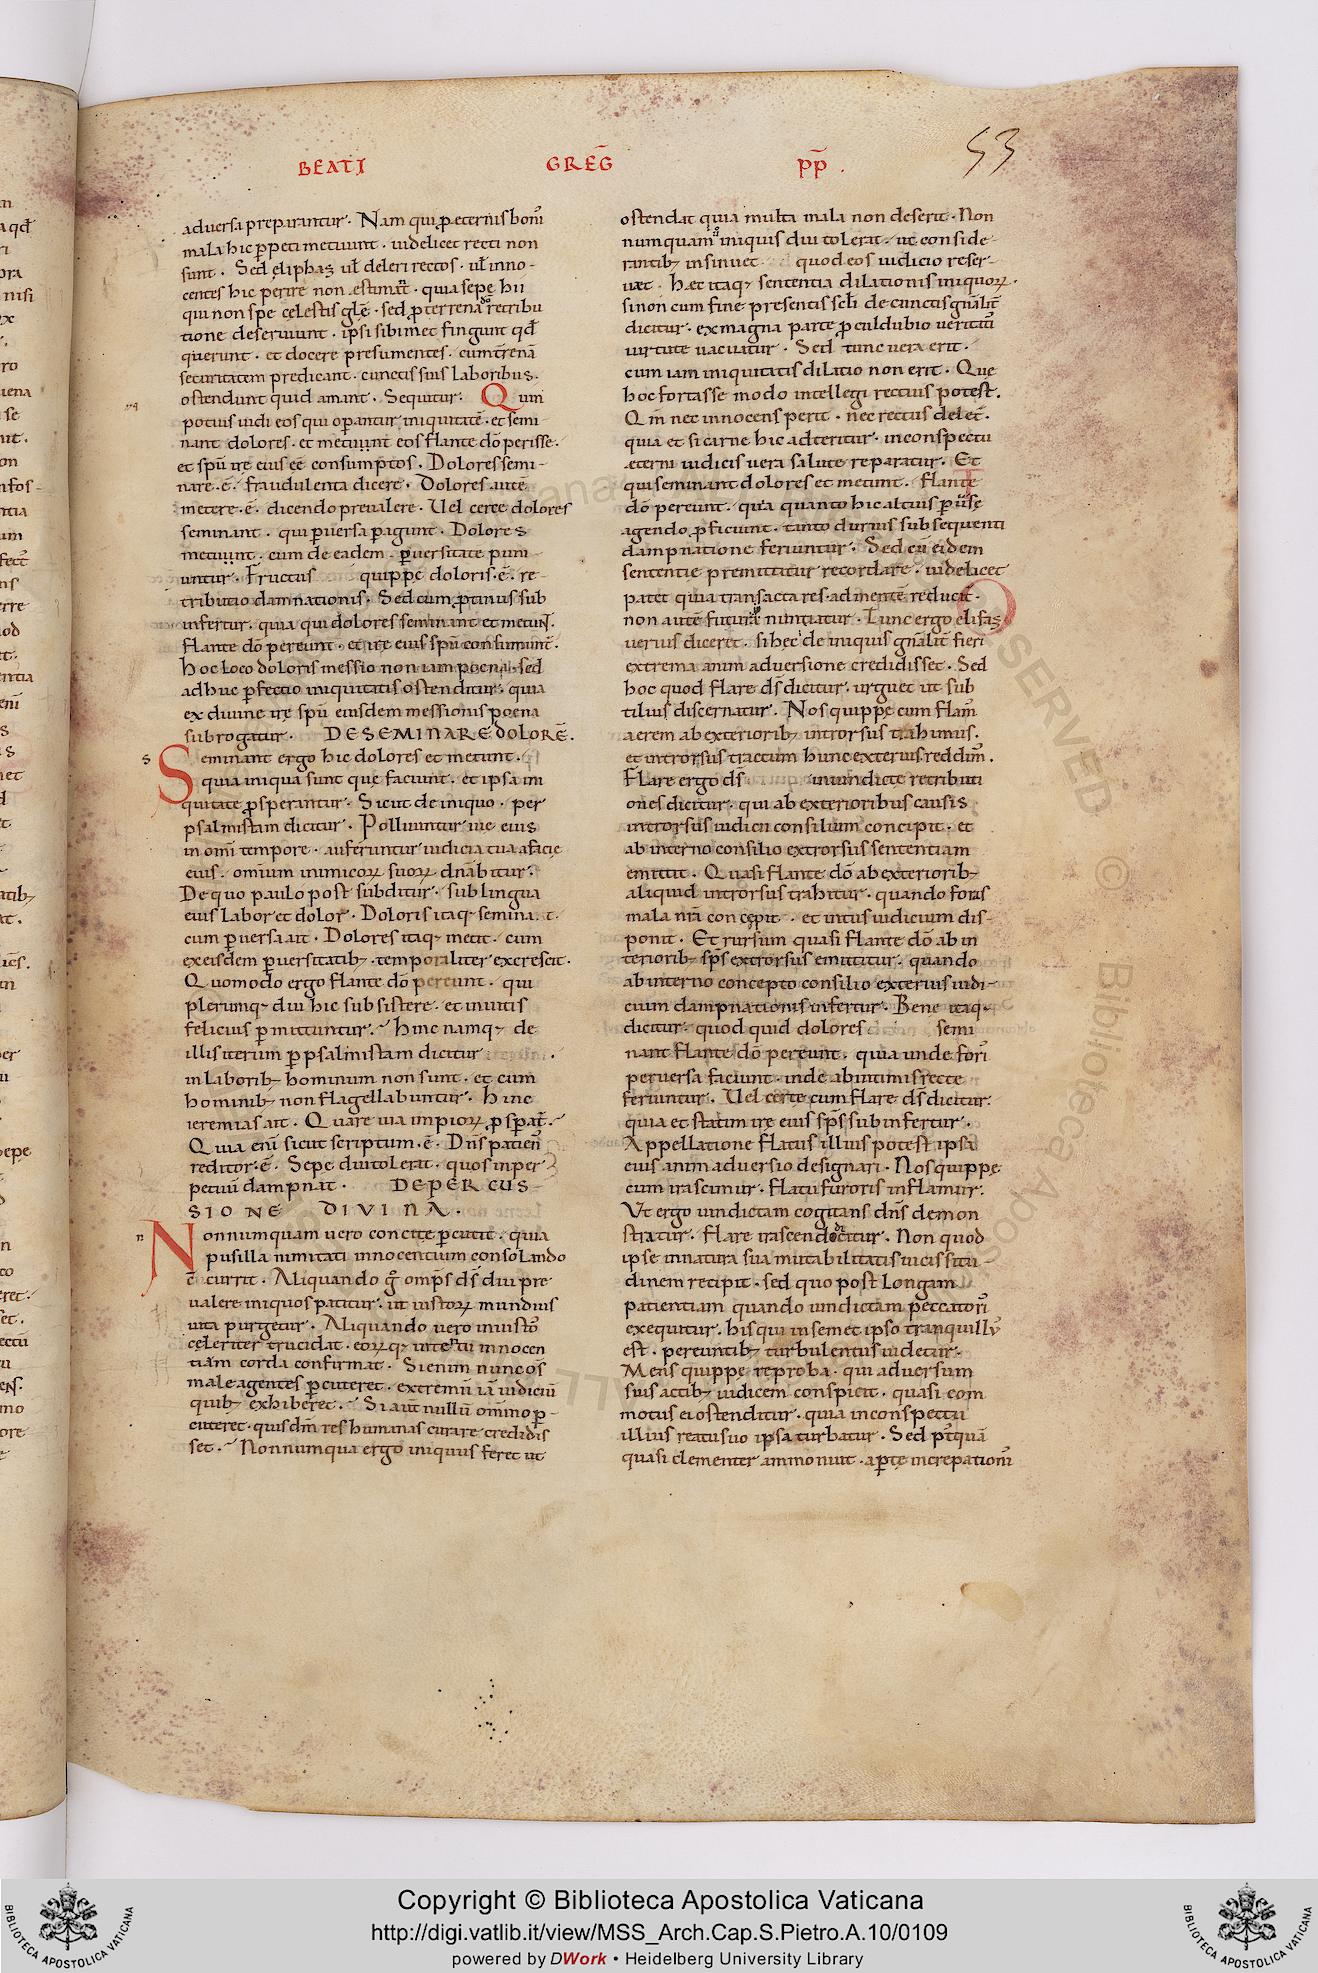 BEATI GREḠ P̄P̄ .
53
adversa preparantur · Nam qui ꝓ eternis bonis
mala hic ꝑpeti metuunt · uidelicet recti non
sunt · Sed eliphaz ul̄ deleri rectos · ul̄ inno-
centes hic perire non estimat · quia sepe hii
qui non spe celestis gl̄ę · sed ꝓ terrena retribu
tione deseruiunt · ipsi sibimet fingunt qd̄
querunt · et docere presumentes · cum terrenā
securitatem predicant · cunctis suis laboribus ·
ostendunt quid amant · Sequitur · Quin
potius uidi eos qui oꝑantur iniquitatē · et semi
nant dolores · et metunt eos flante dō perisse ·
et spū irę eius eē consumptos · Dolores semi-
nare · ē · fraudulenta dicere · Dolores autē
metere · ē · dicendo preualere · Uel certe dolores
seminant · qui ꝑuersa ꝑagunt · Dolores
metunt · cum de eadem ꝑuersitate puni
untur · Fructus quippe doloris · ē · re-
tributio damnationis · Sed cum ꝓtinus sub
infertur · quia qui dolores seminant et metunt ·
flante dō pereunt · et irę eius spū consumunt̄ ·
Hoc loco doloris messio non iam poena · sed
adhuc ꝑfectio iniquitatis ostenditur · quia
ex divine irę spū eiusdem messionis poena
subrogatur · DE SEMINARE DOLORĒ ·
s Seminant ergo hic dolores et metunt ·
quia iniqua sunt quę faciunt · et ipsa in
quitate ꝓsperantur · Sicut de iniquo · per
psalmistam dicitur · Polluuntur uie eius
in omī tempore · auferuntur iudicia tua a facie
eius · omnium inimicoꝝ suoꝝ dn̄abitur ·
De quo paulo post subditur · sub lingua
eius labor et dolor · Doloris itaq; semina t ·
cum ꝑuersa ait · Dolores itaq; metit · cum
ex eisdem ꝑuersitatib; · temporaliter excrescit ·
Quomodo ergo flante dō pereunt · qui
plerumq; diu hic subsistere · et inuitis
felicius ꝑmittuntur · hinc namq; de
illis iterum ꝑ psalmistam dicitur ·
in laborib; hominum non sunt · et cum
hominib; non flagellabuntur · Hinc
ieremias ait · Quare uia impioꝝ ꝓsꝑat̄ ·
Quia enī sicut scriptum · ē · Dn̄s patiens
reditor · ē · Sepe diu tolerat · quos in per
petuū dampnat · DE PERCUS
SIONE DIVINA ·
n Nonnumquam uero concite ꝑcutit · quia
pusilla nimitati innocentium consolando
c̄currit · Aliquando g̊ omp̄s d̄s diu pre
ualere iniquos patitur · ut iustoꝝ mundius
uita purgetur · Aliquando uero iniustos
celeriter trucidat · eoꝝq; interitu innocen
tiam corda confirmat · Si enim nunc os
male agentes ꝑcuteret · extremū iā iudiciū
quib; exhiberet · Si aut̄ nullū omīno ꝑ-
cuteret · quis dm̄ res humanas curare credidis
set · Nonnumqua ergo iniquus feret ut
ostendat quia multa mala non deserit · Non
numquam iniquis diu tolerat · ut conside-
rantib; insinuet quod eos iudicio reser-
uet · Hæc itaq; sententia dilationis iniquoꝝ ·
si non cum fine presentis scl̄i de cunctis gn̄alit̄
dicitur · ex magna parte ꝓculdubio veritatis
uirtute uacuatur · Sed tunc uera erit ·
cum iam iniquitatis dilatio non erit · Que
hoc fortasse modo intellegi rectius potest ·
Qm̄ nec innocens perit · nec rectus delet̄ ·
quia et si carne hic adteritur · in conspectu
æterni iudicis uera salute reparatur · Et
qui seminant dolores et metunt · flante
dō pereunt · quia quanto hic altius ꝑuerse
agendo ꝓficiunt · tanto durius subsequenti
dampnatione feriuntur · Sed cū eidem
sententie premittitur recordare · uidelicet
patet quia transacta res · ad mentē reducit̄ ·
non autē futura nuntiatur · Tunc ergo elifaz
uerius diceret · si hec de iniquis gn̄alit̄ fieri
extrema animaduersione credidisset · Sed
hoc quod flare d̄s dicitur · urguet ut sub
tilius discernatur · Nos quippe cum flam̄
aerem ab exteriorib; introrsus trahimus ·
et introrsus tractum hunc exterius reddim̄ ·
Flare ergo d̄s in uindicte retributi
ones dicitur · qui ab exterioribus causis
introrsus iudicii consilium concipit · et
ab interno consilio extrorsus sententiam
emittit · Quasi flante dō ab exteriorib;
aliquid introrsus trahitur · quando foras
mala nr̄a concępit · et intus iudicium dis-
ponit · Et rursum quasi flante dō ab in
teriorib; sp̄s extrorsus emittitur · quando
ab interno concepto consilio exterius iudi-
cium dampnationis infertur · Bene itaq;
dicitur · quod quid dolores semi
nant flante dō pereunt · quia unde foris
peruersa faciunt · inde ab intimis recte
feriuntur · Uel certe cum flare d̄s dicitur ·
quia et statim irę eius sp̄s subinfertur ·
Appellatione flatus illius potest ipsa
eius animaduersio designari · Nos quippe
cum irascimur · flatu furoris inflamur ·
Ut ergo uindictam cogitans dn̄s demon
stratur · flare irascendo dicitur · Non quod
ipse in natura sua mutabilitatis uicissitu-
dinem recipit · sed quo post longam
patientiam quando uindictam peccatoris
exequitur · his qui in semet ipso tranquillus
est · pereuntib; turbulentus uidetur ·
Mens quippe reproba · qui aduersum
suis actib; iudicem conspicit · quasi com
motus ei ostenditur · quia in conspectu
illius reatu suo ipsa turbatur · Sed pt̄quā
quasi clementer ammonuit · aꝑte increpationis
Copyright © Biblioteca Apostolica Vaticana
http://digi.vatlib.it/view/MSS_Arch.Cap.S.Pietro.A.10/0109
powered by DWork • Heidelberg University Library
BIBLIOTECA APOSTOLICA VATICANA
BIBLIOTECA APOSTOLICA VATICANA